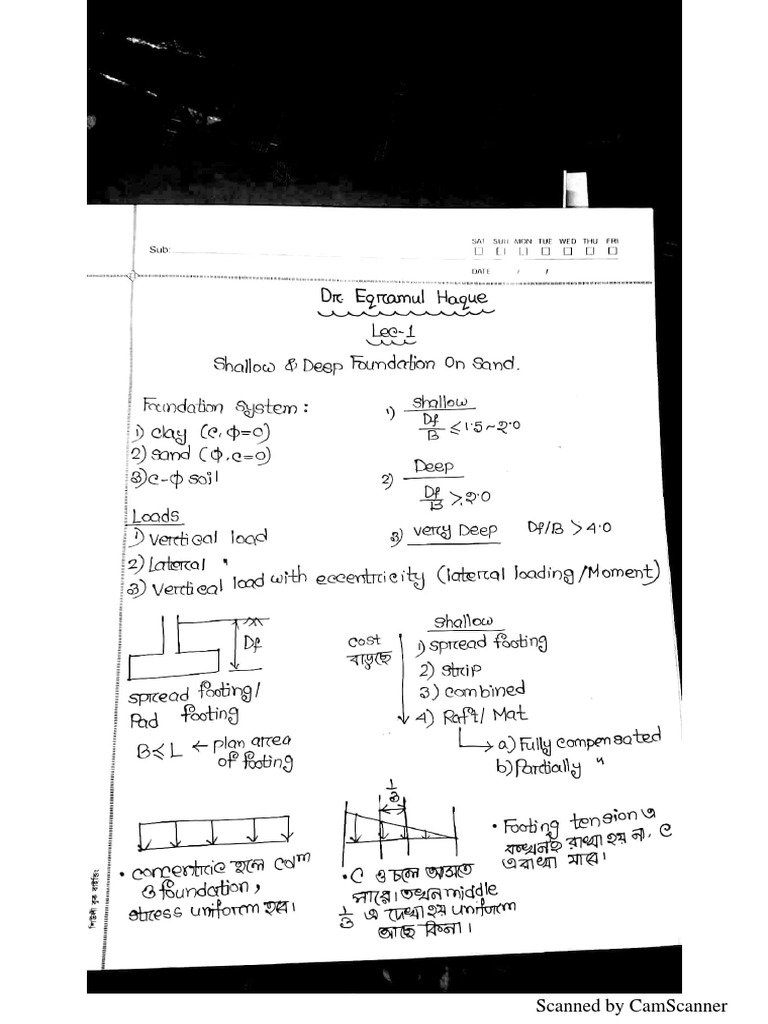 Sub:
SAT SUN MON TUE WED THU FRI
DATE / /
Dr. Eqramul Haque
Lec-1
Shallow & Deep Foundation On Sand.
Foundation System:
1) clay (c, Φ=0)
2) sand (Φ, c=0)
3) c-Φ soil
1) Shallow
Df/B ≤ 1.5~2.0
2) Deep
Df/B > 2.0
3) Very Deep Df/B > 4.0
Loads
1) Vertical load
2) Lateral "
3) Vertical load with eccentricity (lateral loading/Moment)
Df
Spread footing/
Pad footing
B ≤ L ← plan area
of footing
cost
বাড়ছে
Shallow
1) spread footing
2) strip
3) combined
4) Raft/ Mat
a) Fully compensated
b) Partially "
1/3
• concentric হলে colm
ও foundation,
stress uniform হয়।
• C ও চলে আসতে
পারে। তখন middle
1/3 এ দেখা হয় uniform
আছে কিনা।
• Footing tension এ
কখনই রাখা হয় না, C
এ রাখা যাবে।
পিউলী বুক বাইন্ডিং
Scanned by CamScanner